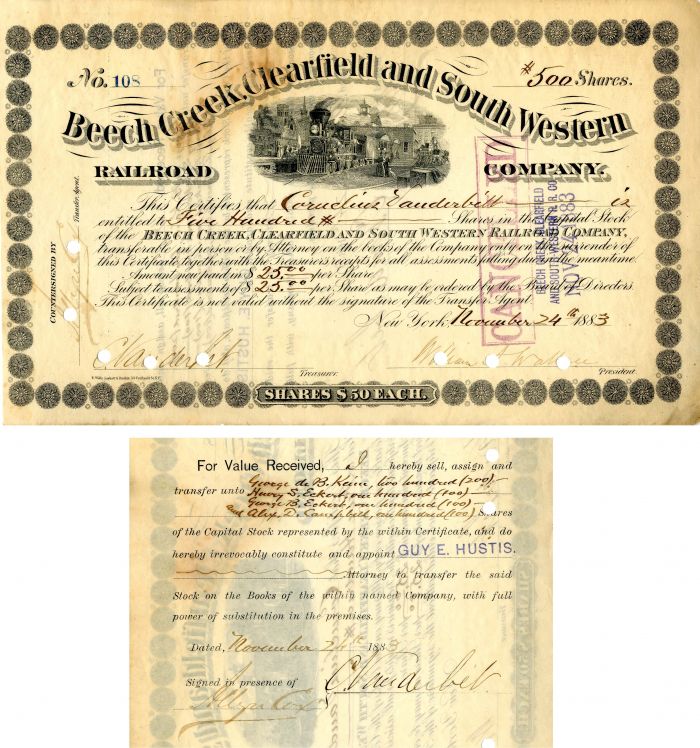 No. 108
$500 Shares.
Beech Creek, Clearfield and South Western
RAILROAD COMPANY.
This Certifies that Cornelius Vanderbilt is
entitled to Five Hundred Shares in the Capital Stock
of the BEECH CREEK, CLEARFIELD AND SOUTH WESTERN RAILROAD COMPANY,
transferable in person or by Attorney on the books of the Company only on the surrender of
this Certificate together with the Treasurers receipts for all assessments falling due in the meantime.
Amount now paid in $ 25.00 per Share
Subject to assessments of $ 25.00 per Share as may be ordered by the Board of Directors.
This Certificate is not valid without the signature of the Transfer Agent
New York, November 24th 1883
COUNTERSIGNED BY
Transfer Agent.
CANCELLED
BEECH CREEK, CLEARFIELD
AND SOUTH WESTERN R. R. CO.
NOV 83
C Vanderbilt
Treasurer.
President.
SHARES $50 EACH.
For Value Received, I hereby sell, assign and
transfer unto George de B. Keim, two hundred (200)
Henry S. Eckert, one hundred (100)
George B. Eckert, one hundred (100)
and Alex. D. Campbell, one hundred (100) Shares
of the Capital Stock represented by the within Certificate, and do
hereby irrevocably constitute and appoint GUY E. HUSTIS.
Attorney to transfer the said
Stock on the Books of the within named Company, with full
power of substitution in the premises.
Dated, November 24th 1883
Signed in presence of
C Vanderbilt.